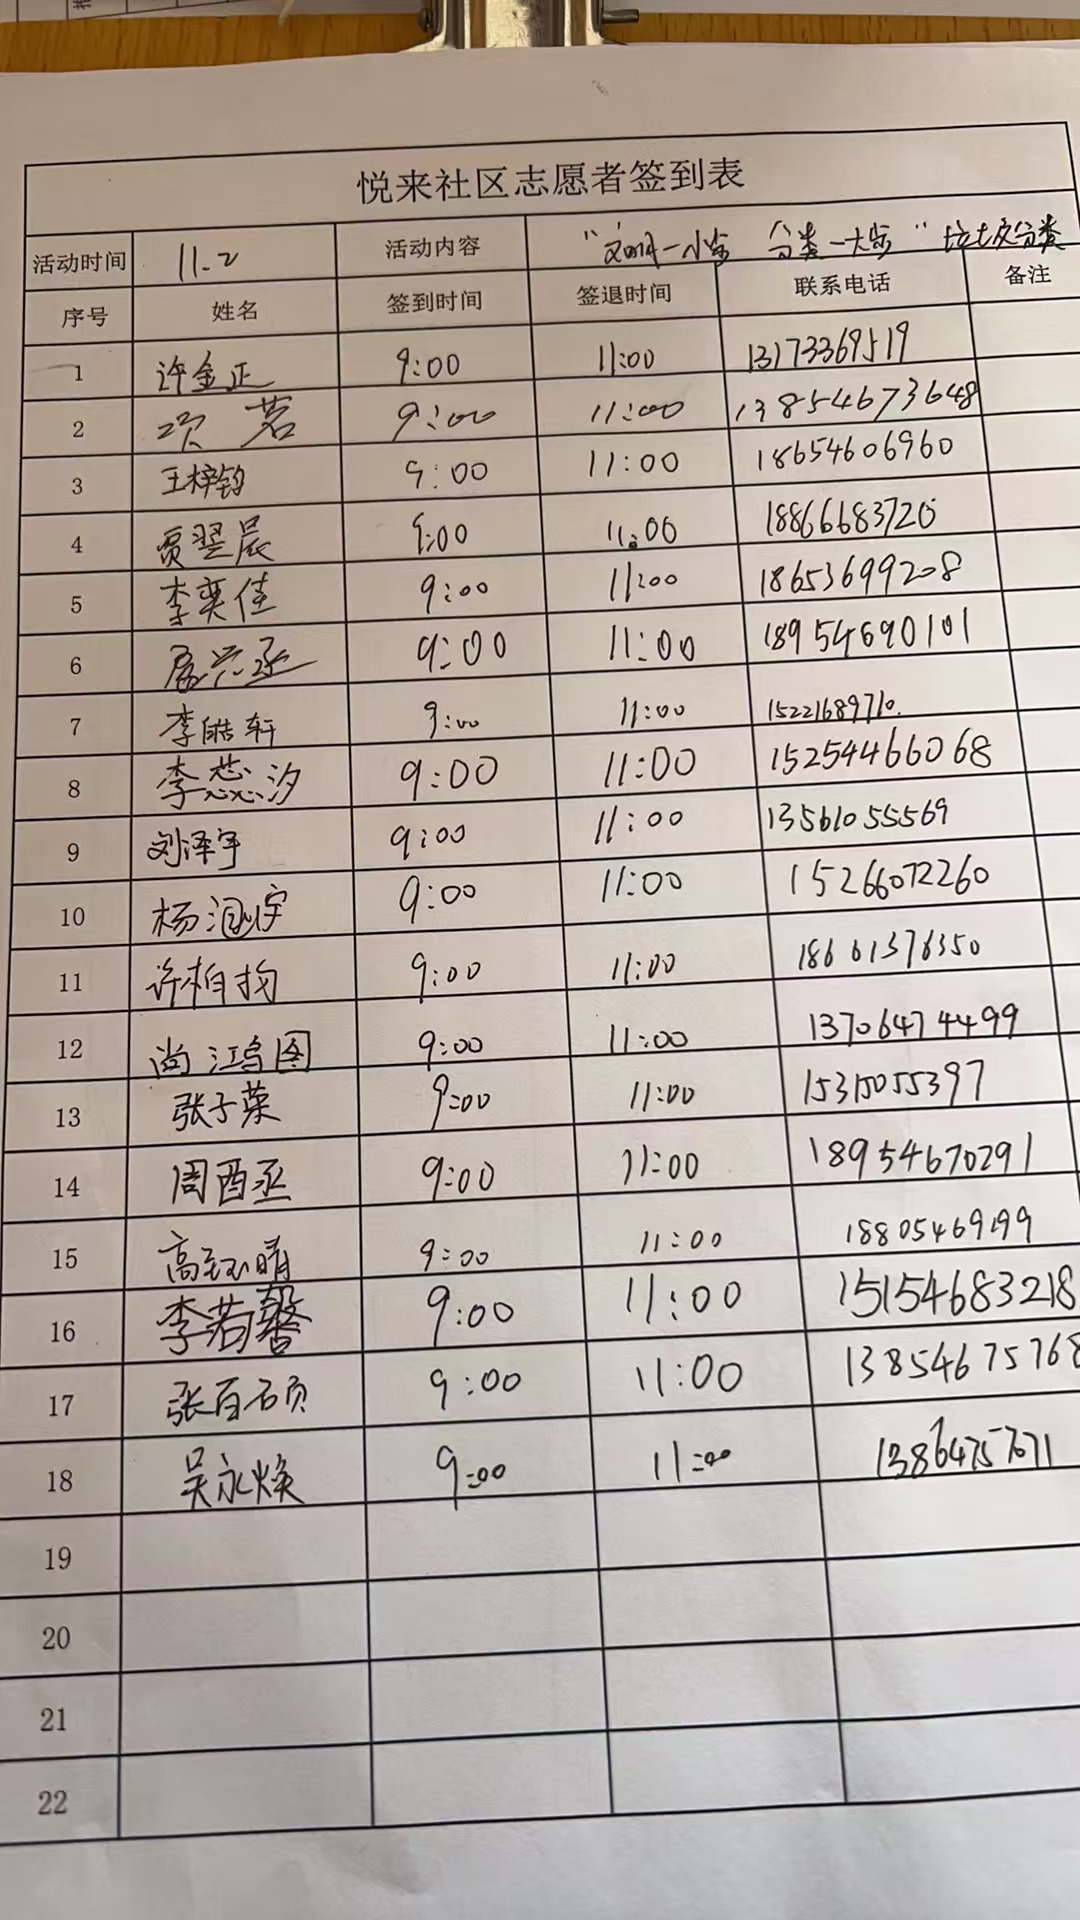 悦来社区志愿者签到表
活动时间 11.2 活动内容 "文明一小步 分类一大步"垃圾分类
序号 姓名 签到时间 签退时间 联系电话 备注
1 许金正 9:00 11:00 13173369519
2 项茗 9:00 11:00 13854673648
3 王梓钧 9:00 11:00 18654606960
4 贾翌晨 9:00 11:00 18866683720
5 李奕佳 9:00 11:00 18653699208
6 扈兴丞 9:00 11:00 18954690101
7 李皓轩 9:00 11:00 15221689710.
8 李蕊汐 9:00 11:00 15254466068
9 刘泽宇 9:00 11:00 13561055569
10 杨 宇 9:00 11:00 15266072260
11 许柏均 9:00 11:00 18661376350
12 尚鸿图 9:00 11:00 13706474499
13 张子荣 9:00 11:00 15315055397
14 周酉丞 9:00 11:00 18954670291
15 高钰晴 9:00 11:00 18805469199
16 李若馨 9:00 11:00 15154683218
17 张百硕 9:00 11:00 13854675768
18 吴永焕 9:00 11:00 13864757671
19
20
21
22